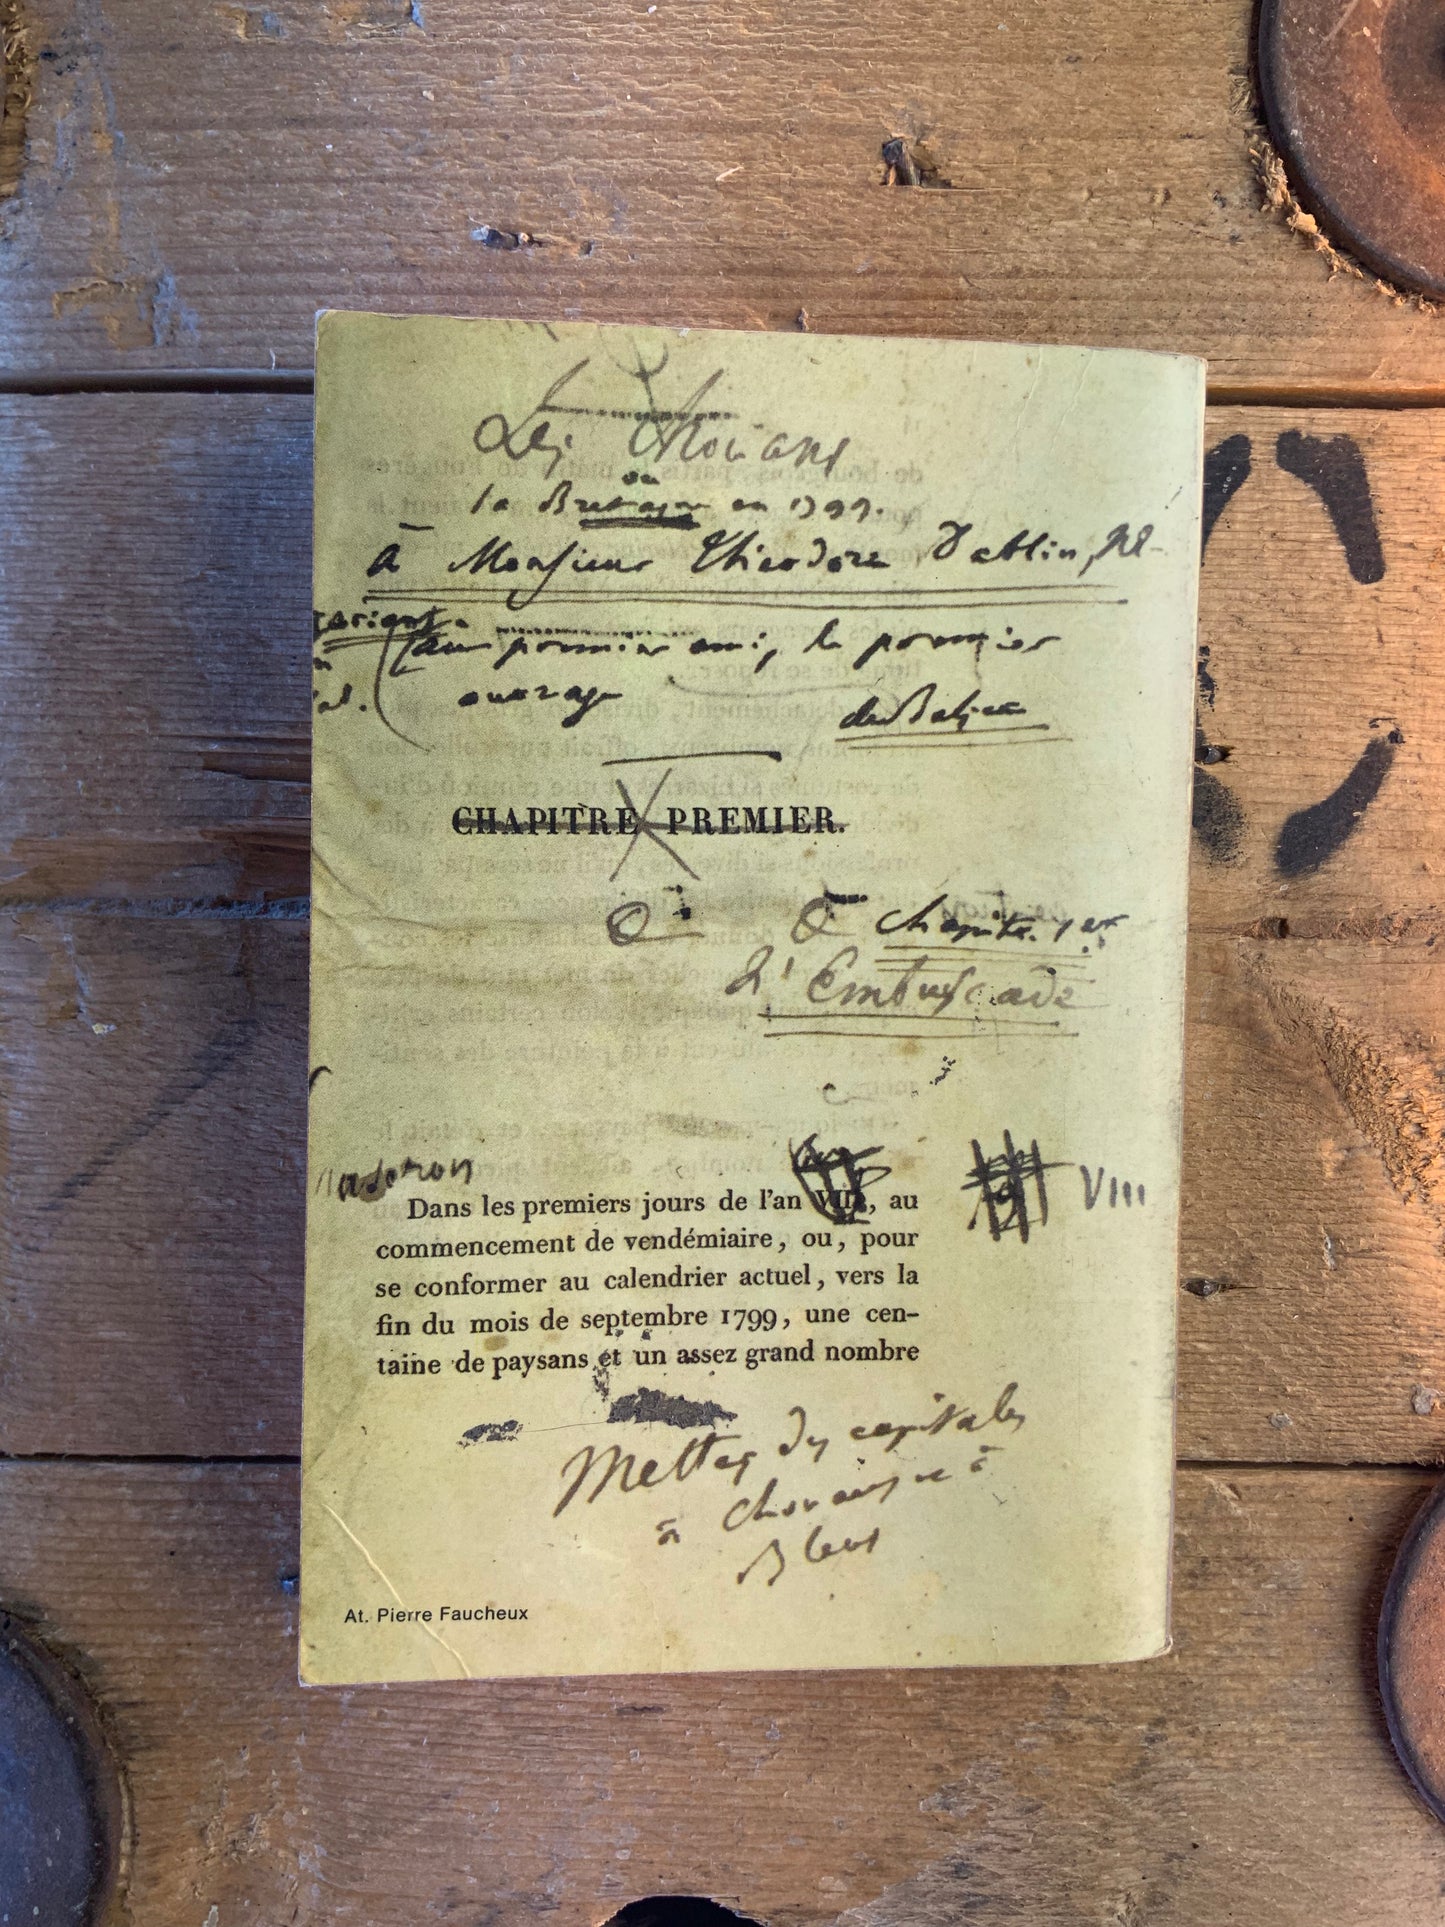 Les Chouans
ou
la Bretagne en 1799.
à Monsieur Théodore Dablin, Né-
gociant.
(au premier ami, le premier
ouvrage
de Balzac
CHAPITRE PREMIER.
Chapitre 1er
L'Embuscade
Dans les premiers jours de l'an VIII, au
VIII
commencement de vendémiaire, ou, pour
se conformer au calendrier actuel, vers la
fin du mois de septembre 1799, une cen-
taine de paysans et un assez grand nombre
Mettez des capitales
à chouans et à
Bleus
At. Pierre Faucheux